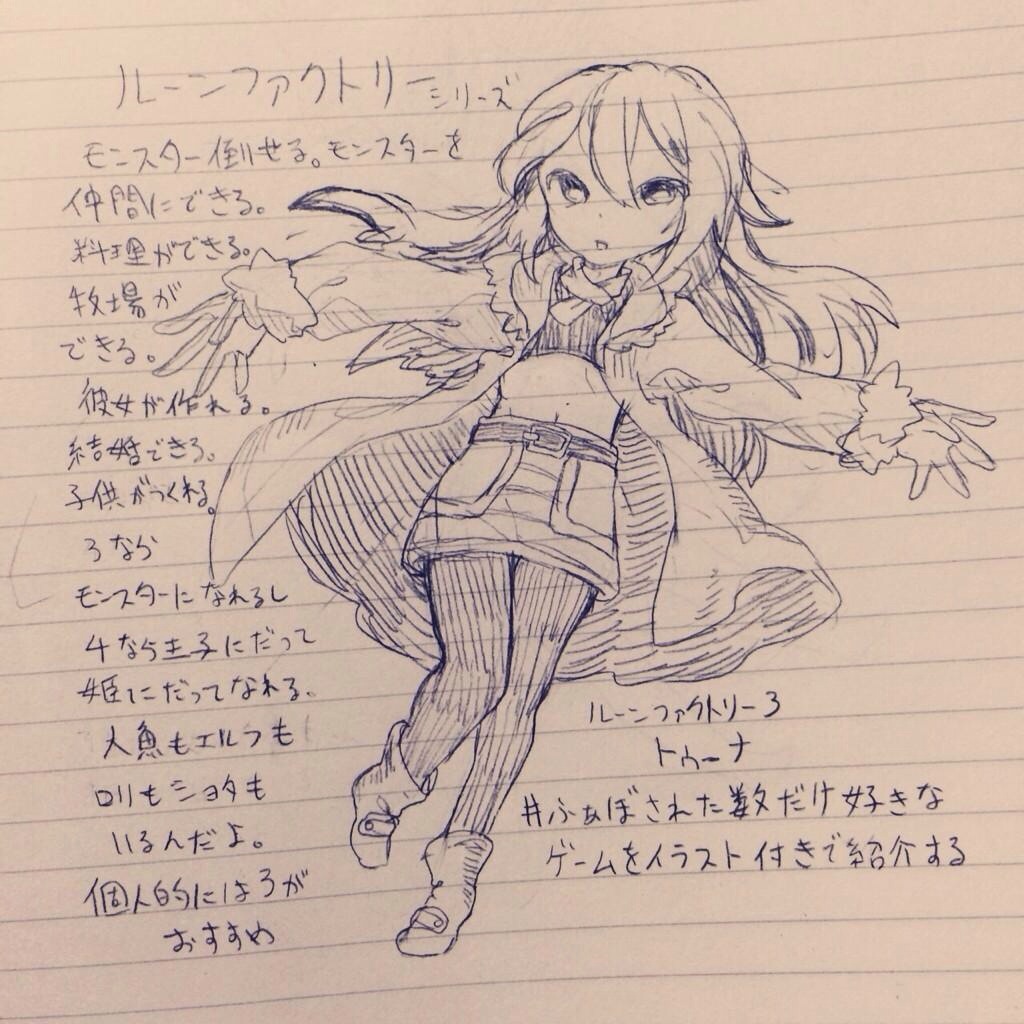 ルーンファクトリーシリーズ
モンスター倒せる。モンスターを
仲間にできる。
料理ができる。
牧場が
できる。
彼女が作れる。
結婚できる。
子供がつくれる。
3なら
モンスターになれるし
4なら王子にだって
姫にだってなれる。
人魚もエルフも
ロリもショタも
いるんだよ。
個人的には3が
おすすめ
ルーンファクトリー3
トゥーナ
#ふぁぼされた数だけ好きな
ゲームをイラスト付きで紹介する